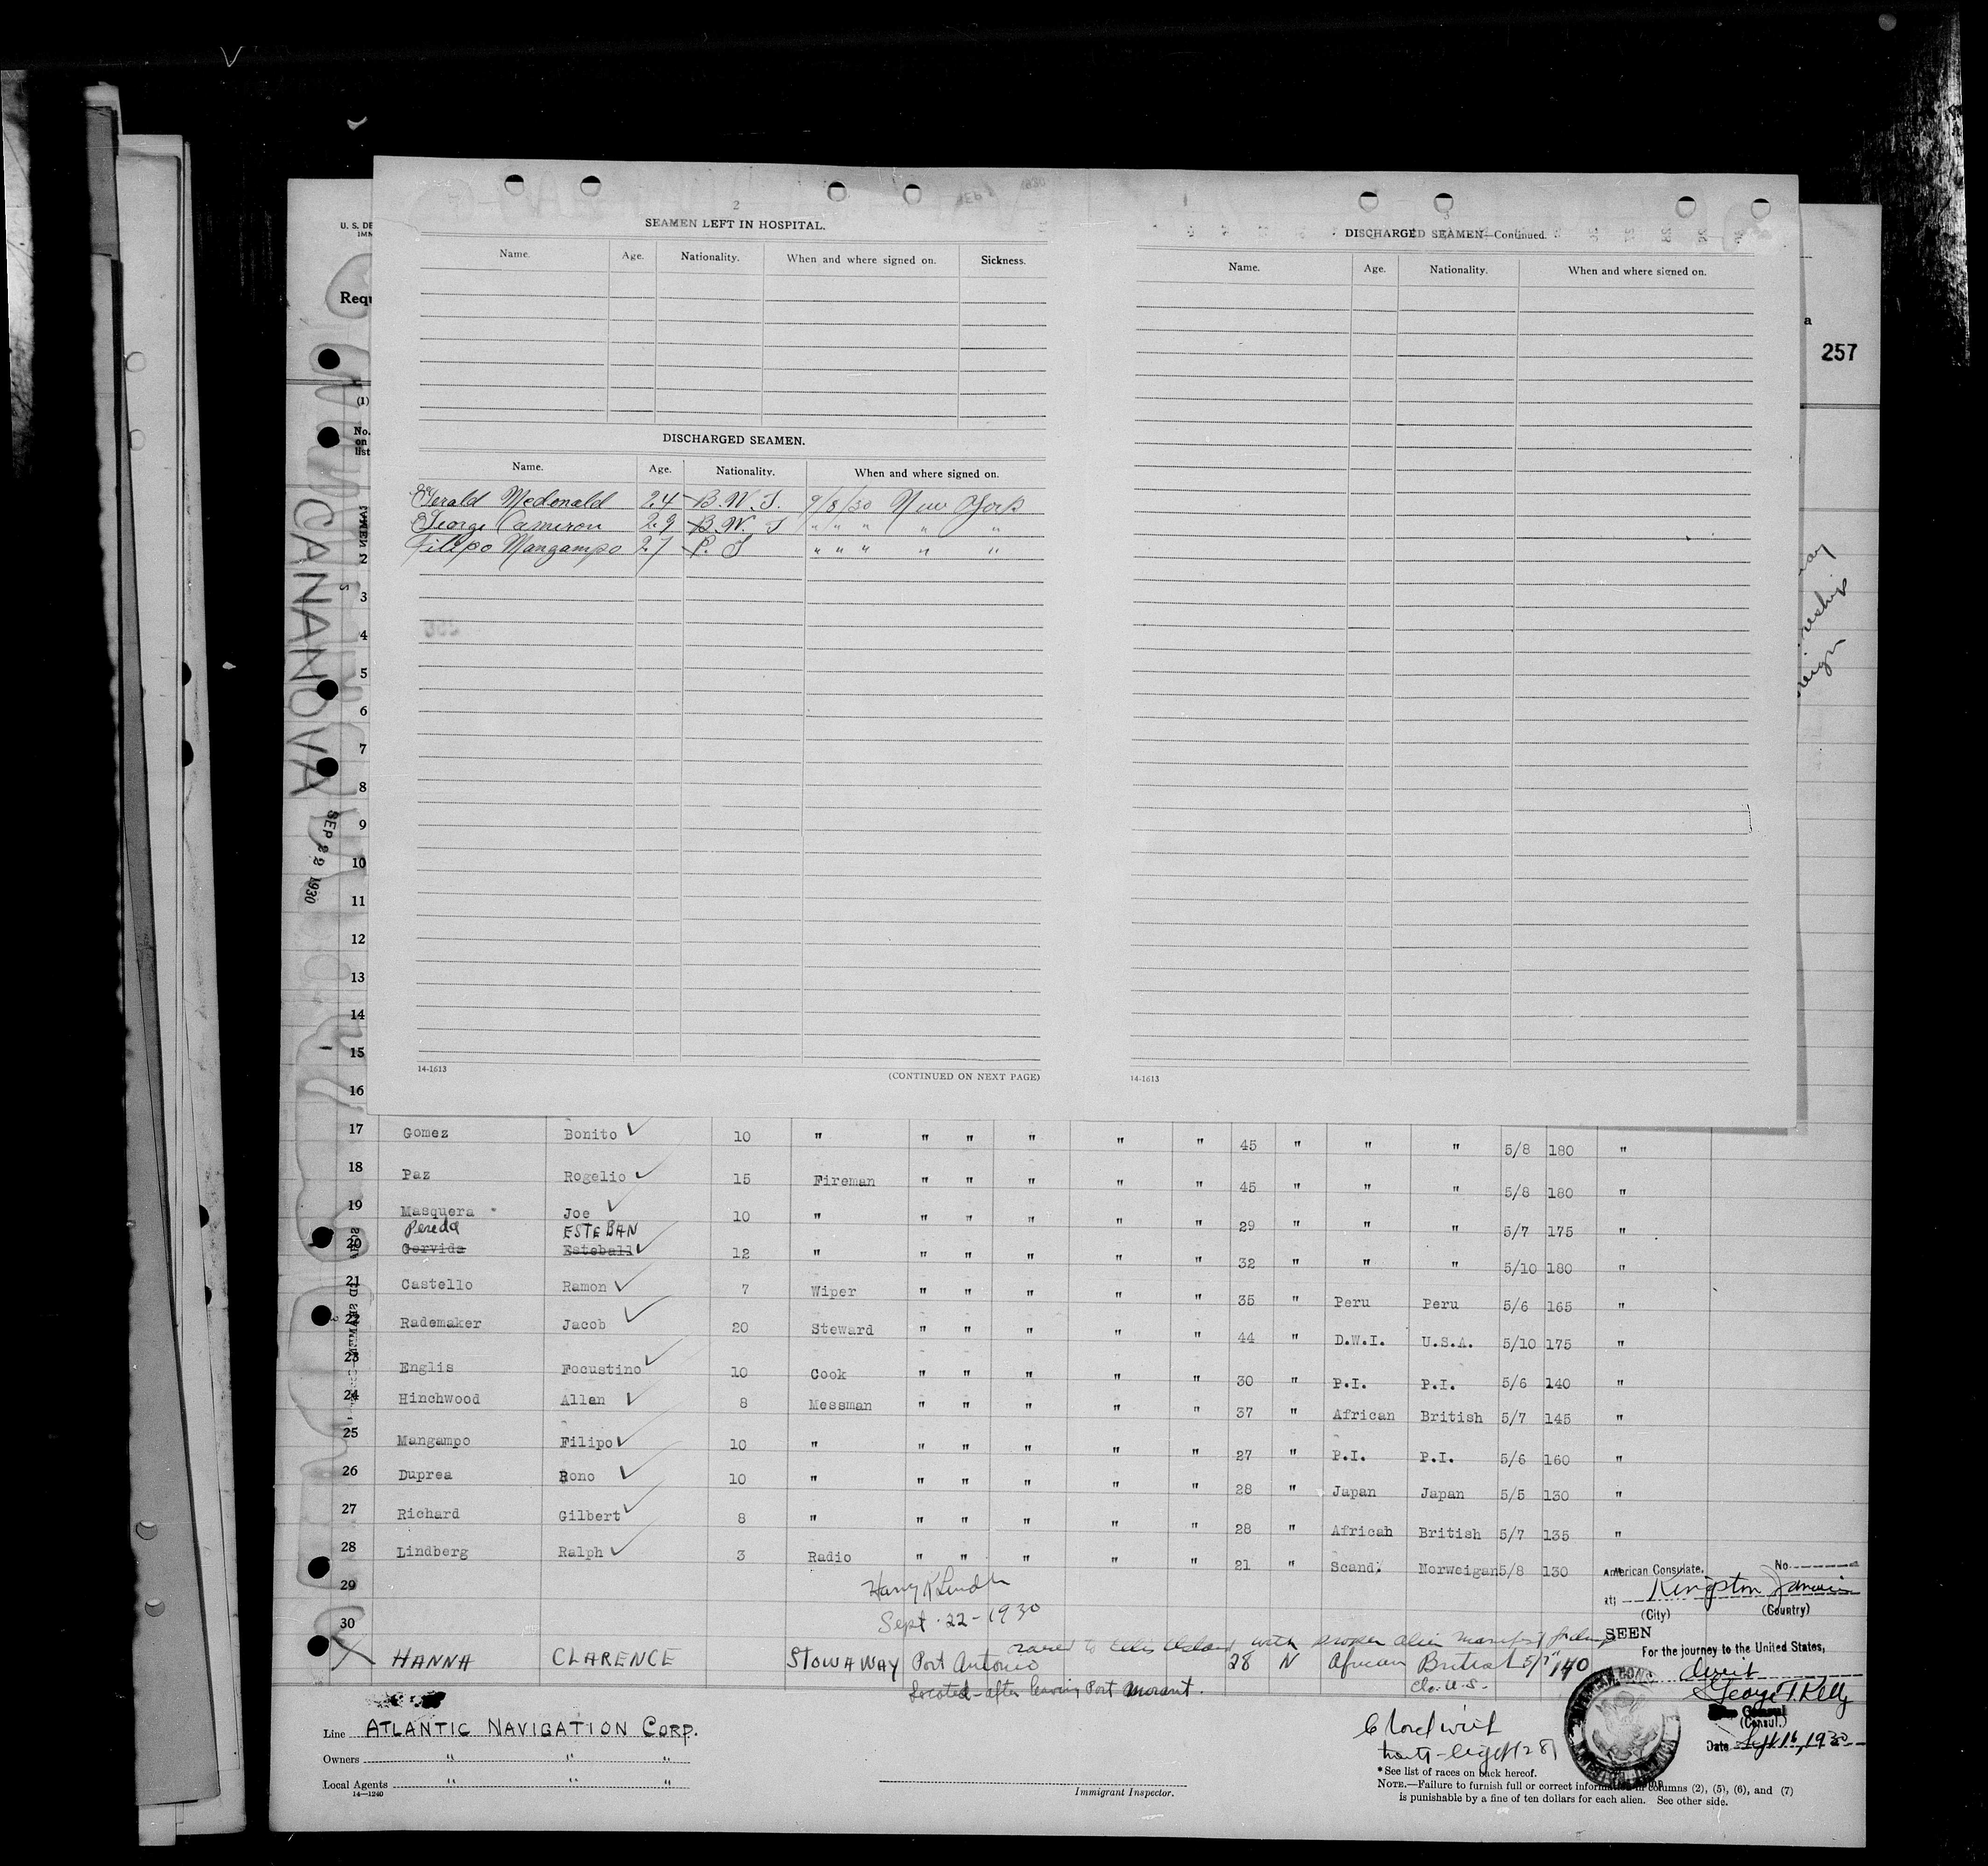 2
SEAMEN LEFT IN HOSPITAL.
Name. Age. Nationality. When and where signed on. Sickness.
DISCHARGED SEAMEN.
Name. Age. Nationality. When and where signed on.
Gerald Mcdonald 24 B.W.I. 9/8/30 New York
George Cameron 29 B.W.I " " " " "
Filipo Mangampo 27 P.I " " " " "
14-1613 (CONTINUED ON NEXT PAGE)
DISCHARGED SEAMEN—Continued.
Name. Age. Nationality. When and where signed on.
14-1613
U. S. DE
IMM
Requ
a
257
(1)
No.
on
list
CANANOVA
SEP 22 1930
2
3
4
5
6
7
8
9
10
11
12
13
14
15
16
17 Gomez Bonito ✓ 10 " " " " " " 45 " " " 5/8 180 "
18 Paz Rogelio ✓ 15 Fireman " " " " " 45 " " " 5/8 180 "
19 Masquera Joe ✓ 10 " " " " " " 29 " " " 5/7 175 "
Pereda ESTEBAN
20 Gervida Esteball ✓ 12 " " " " " " 32 " " " 5/10 180 "
21 Castello Ramon ✓ 7 Wiper " " " " " 35 " Peru Peru 5/6 165 "
22 Rademaker Jacob ✓ 20 Steward " " " " " 44 " D.W.I. U.S.A. 5/10 175 "
23 Englis Focustino ✓ 10 Cook " " " " " 30 " P.I. P.I. 5/6 140 "
24 Hinchwood Allan ✓ 8 Messman " " " " " 37 " African British 5/7 145 "
25 Mangampo Filipo ✓ 10 " " " " " " 27 " P.I. P.I. 5/6 160 "
26 Duprea Bono ✓ 10 " " " " " " 28 " Japan Japan 5/5 130 "
27 Richard Gilbert ✓ 8 " " " " " " 28 " African British 5/7 135 "
28 Lindberg Ralph ✓ 3 Radio " " " " " 21 " Scand. Norweigan 5/8 130
29
Sept. 22-1930
30
with proper alien manifest
X HANNA CLARENCE STOWAWAY Port Antonio 28 N African British 5/7 140
Located after leaving Port Morant.
American Consulate, No.
at; Kingston Jamaica
(City) (Country)
SEEN
For the journey to the United States,
direct
George T. Kelly
(Consul.)
Date Sept 16, 1930
Line ATLANTIC NAVIGATION CORP.
Owners " " "
Local Agents " " "
14—1240
Immigrant Inspector.
* See list of races on back hereof.
NOTE.—Failure to furnish full or correct information in columns (2), (5), (6), and (7)
is punishable by a fine of ten dollars for each alien. See other side.